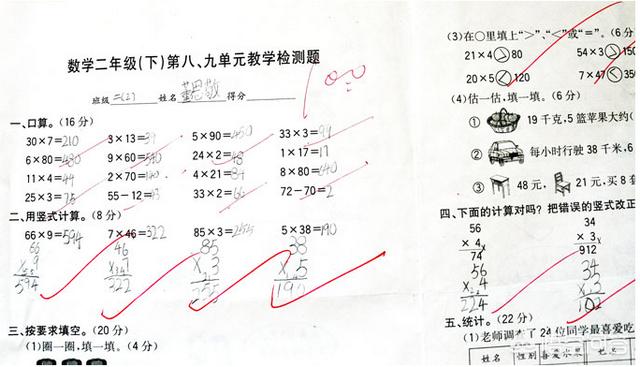 数学二年级(下)第八、九单元教学检测题
班级 二(2) 姓名 得分 100
一、口算。(16分)
30×7=210 3×13=39 5×90=450 33×3=99
6×80=480 9×60=540 24×2=48 1×17=17
11×4=44 2×70=140 4×21=84 8×80=640
25×3=75 55-12=43 33×2=66 72-70=2
二、用竖式计算。(8分)
66×9=594 7×46=322 85×3=255 5×38=190
66 46 85 38
× 9 × 7 × 3 × 5
594 322 255 190
三、按要求填空。(20分)
(1)圈一圈,填一填。(4分)
(3)在○里填上“>”、“<”或“=”。(6分
21×4>80 54×3>150
20×5<120 7×47<350
(4)估一估,填一填。(6分)
① 19千克,5篮苹果大约(
② 每小时行驶38千米,6
③ 48元, 21元,买8套
四、下面的计算对吗?把错误的竖式改正
56 34
× 4 × 3
74 912
56 34
× 4 × 3
224 102
五、统计。(22分)
(1)老师调查了24位同学最喜爱吃
姓名 性别 喜爱水果 姓名